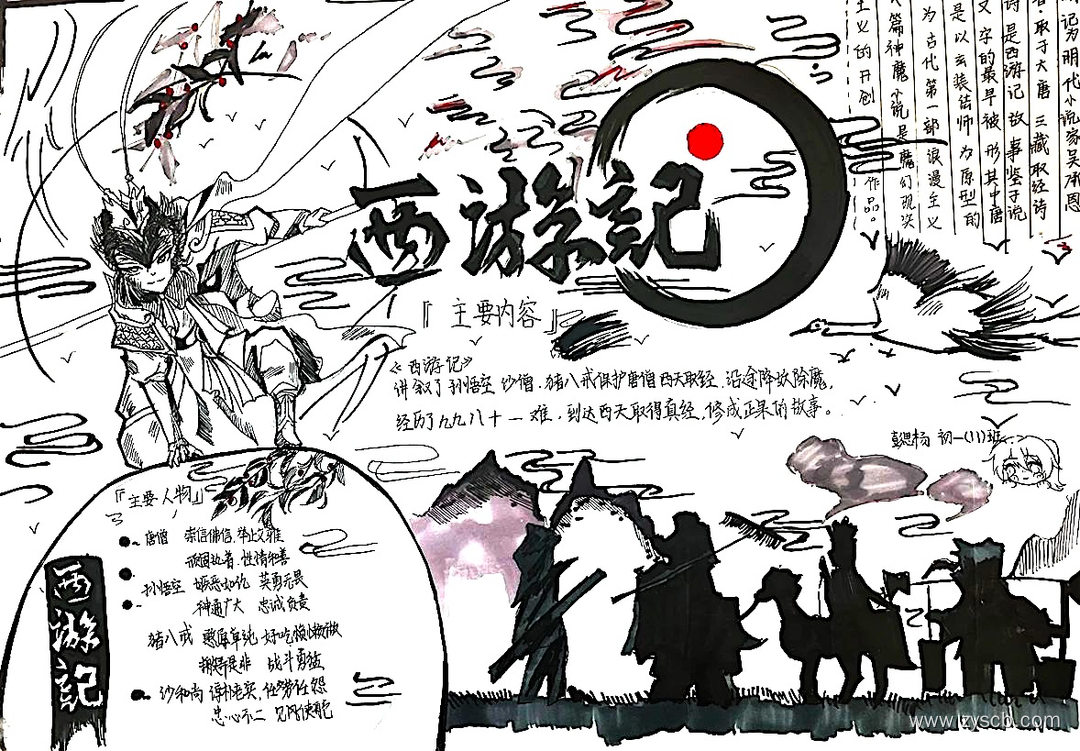 西游記
游记为明代小说家吴承恩
取于大唐三藏取经诗
诗是西游记故事鉴于说
文字的最早被形其中唐
是以玄装法师为原型的
为古代第一部浪漫主义
篇神魔小说是魔幻现实
主义的开创作品。
『主要内容』
《西游记》
讲叙了孙悟空 沙僧.猪八戒保护唐僧西天取经.沿途降妖除魔,
经历了九九八十一难,到达西天取得真经.修成正果的故事。
初一(11)班
『主要人物』
唐僧 崇信佛信,举止文雅
顽固执着,性情和善
孙悟空 嫉恶如仇 英勇无畏
神通广大 忠诚负责
猪八戒 憨厚单纯 好吃懒做
搬弄是非 战斗勇猛
沙和尚 任劳任怨
忠心不二
西游記
www.lzyscb.com